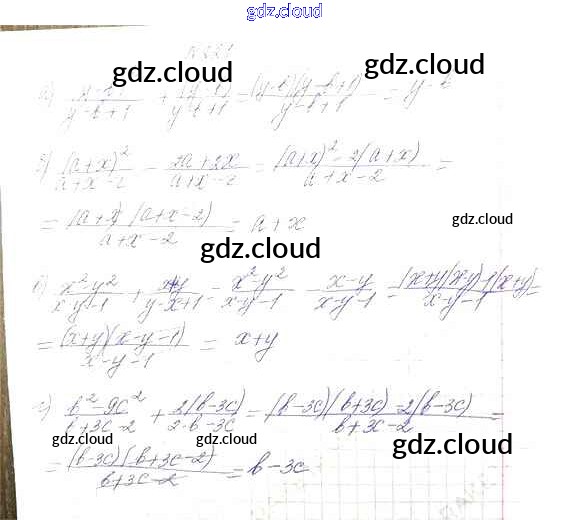 gdz.cloud
gdz.cloud gdz.cloud
+ = (y-t)(y-t+1) / y-t+1 = y-t
(a+x)² / a+x-2 - 2a+2x / a+x-2 = (a+x)²-2(a+x) / a+x-2 =
= (a+x)(a+x-2) / a+x-2 = a+x
gdz.cloud
gdz.cloud
x²-y² / x-y-1 + x+y / y-x+1 = x²-y² / x-y-1 - x-y / x-y-1 = (x+y)(x-y)-1(x+y) / x-y-1 =
= (x+y)(x-y-1) / x-y-1 = x+y
г) b²-9c² / b+3c-2 + 2(b-3c) / 2-b-3c = (b-3c)(b+3c)-2(b-3c) / b+3c-2 =
gdz.cloud gdz.cloud gdz.cloud
= (b-3c)(b+3c-2) / b+3c-2 = b-3c
gdz.cloud gdz.cloud